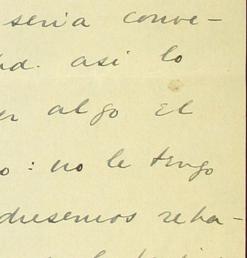 seria conve-
ad. asi lo
er algo el
o: no le tengo
diesemos reba-